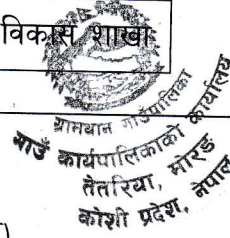 विकास शाखा
ग्रामथान गाउँपालिका
गाउँ कार्यपालिकाको कार्यालय
तेतरिया, मोरङ
कोशी प्रदेश, नेपाल